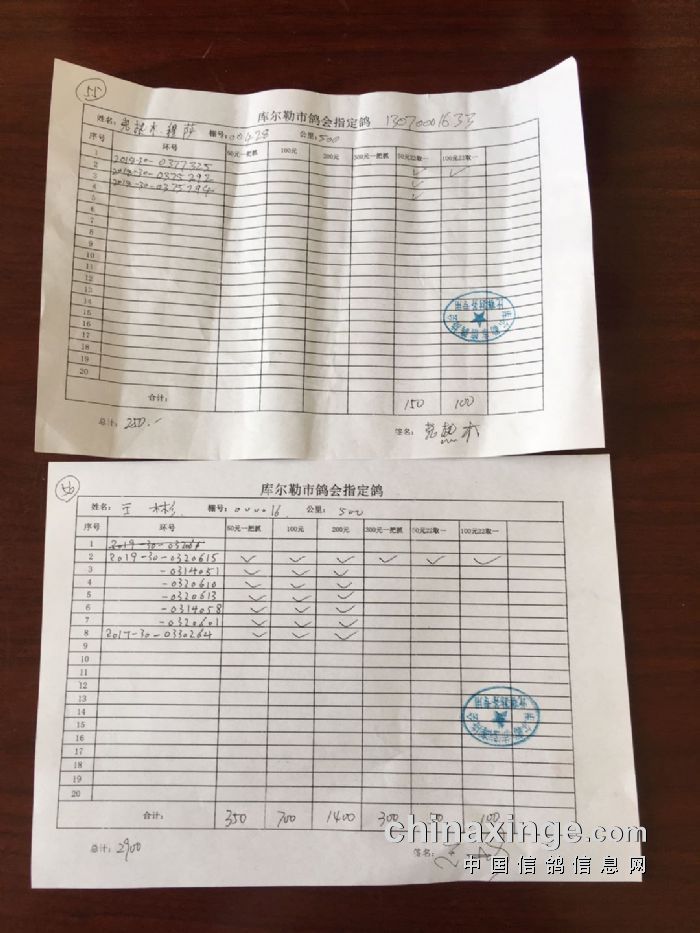 库尔勒市鸽会指定鸽 13070001633
姓名: 棚号:000628 公里:500
序号 环号 50元一把抓 100元 200元 300元一把抓 50元22取一 100元22取一
1
2 2019-30-0377325 ✓ ✓
3 2019-30-0375292 ✓
4 2019-30-0375294 ✓
5
6
7
8
9
10
11
12
13
14
15
16
17
18
19
20
合计: 150 100
总计: 250.- 签名:
56
库尔勒市鸽会指定鸽
姓名: 王 彬 棚号: 000016 公里: 500
序号 环号 50元一把抓 100元 200元 300元一把抓 50元22取一 100元22取一
1
2 2019-30-0320615 ✓ ✓ ✓ ✓ ✓ ✓
3 -0314051 ✓ ✓ ✓
4 -0320610 ✓ ✓ ✓
5 -0320613 ✓ ✓ ✓
6 -0314058 ✓ ✓ ✓
7 -0320601 ✓ ✓ ✓
8 2017-30-0330264 ✓ ✓ ✓
9
10
11
12
13
14
15
16
17
18
19
20
合计: 350 700 1400 300 100
总计: 2900 签名:
chinaxinge.com
中国信鸽信息网